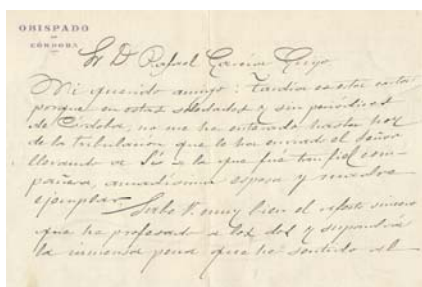 OBISPADO
DE
CÓRDOBA
Sr D Rafael García
Mi querido amigo: Tardía es esta carta
porque en estas soledades y sin periódicos
de Córdoba, no me he enterado hasta hoy
de la tribulación que le ha enviado el Señor
llevando a Sí a la que fué tan fiel com-
pañera, amadísima esposa y madre
ejemplar. Sabe V. muy bien el afecto sincero
que he profesado a los dos y supondrá
la inmensa pena que he sentido al